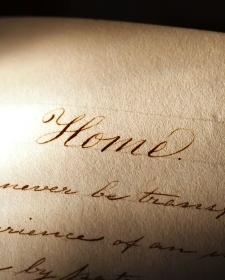 Home.
never be transp
erience of an